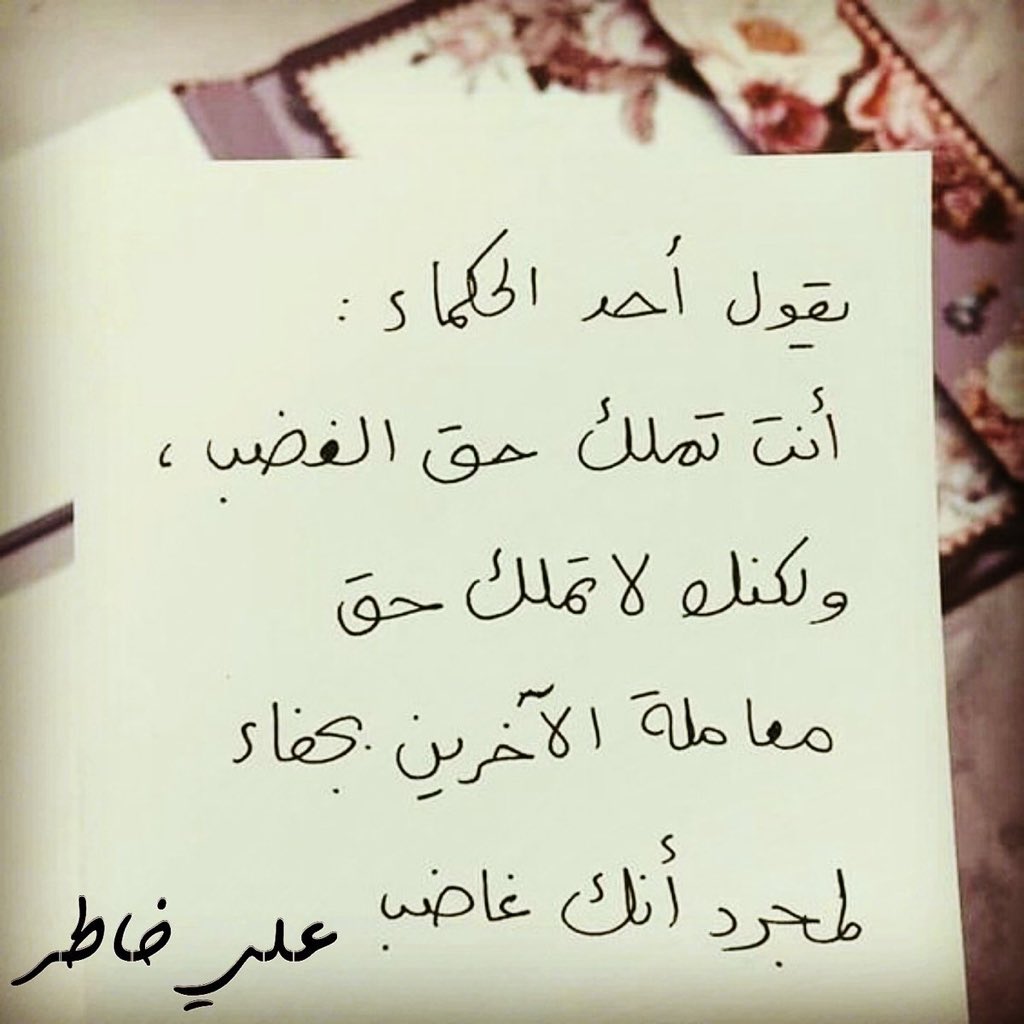 يقول أحد الحكماء :
أنت تملك حق الغضب ،
ولكنك لا تملك حق
معاملة الآخرين بجفاء
لمجرد أنك غاضب
علي خاطر